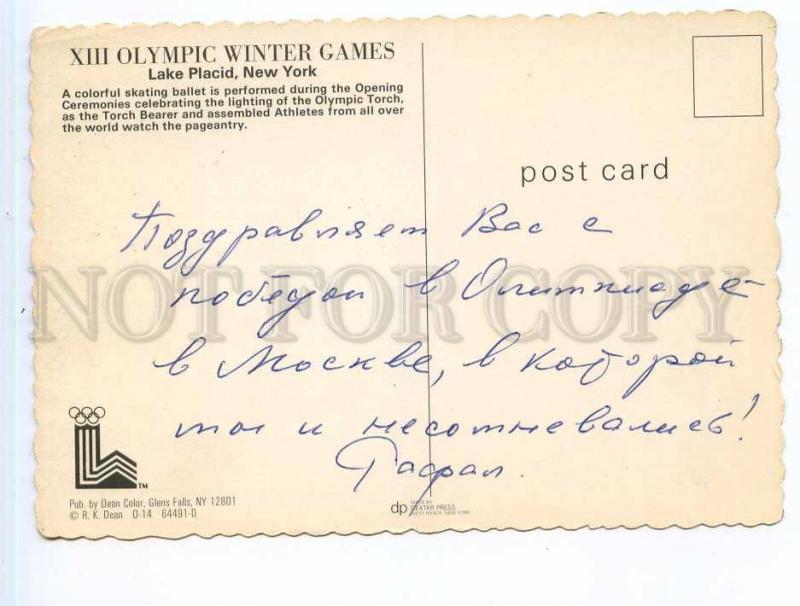 XIII OLYMPIC WINTER GAMES
Lake Placid, New York
A colorful skating ballet is performed during the Opening
Ceremonies celebrating the lighting of the Olympic Torch,
as the Torch Bearer and assembled Athletes from all over
the world watch the pageantry.
post card
Поздравляем Вас с
победой в Олимпиаде
в Москве, в которой
мы и несомневались!
NOT FOR COPY
TM
Pub. by Dean Color, Glens Falls, NY 12801
© R. K. Dean 0-14 64491-D
dp
DEXTER PRESS
WEST NYACK, NEW YORK